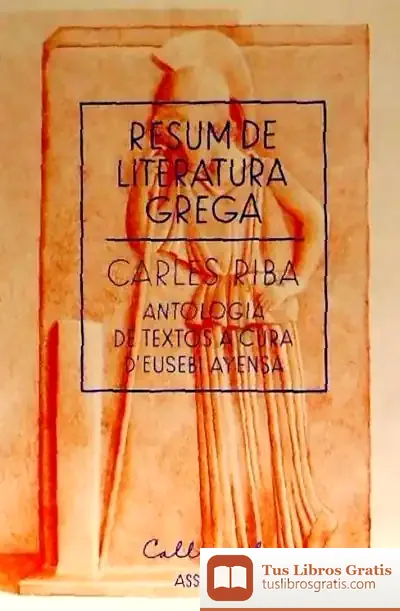 RESUM DE
LITERATURA
GREGA
CARLES RIBA
ANTOLOGIA
DE TEXTOS A CURA
D'EUSEBI AYENSA
Tus Libros Gratis
tuslibrosgratis.com